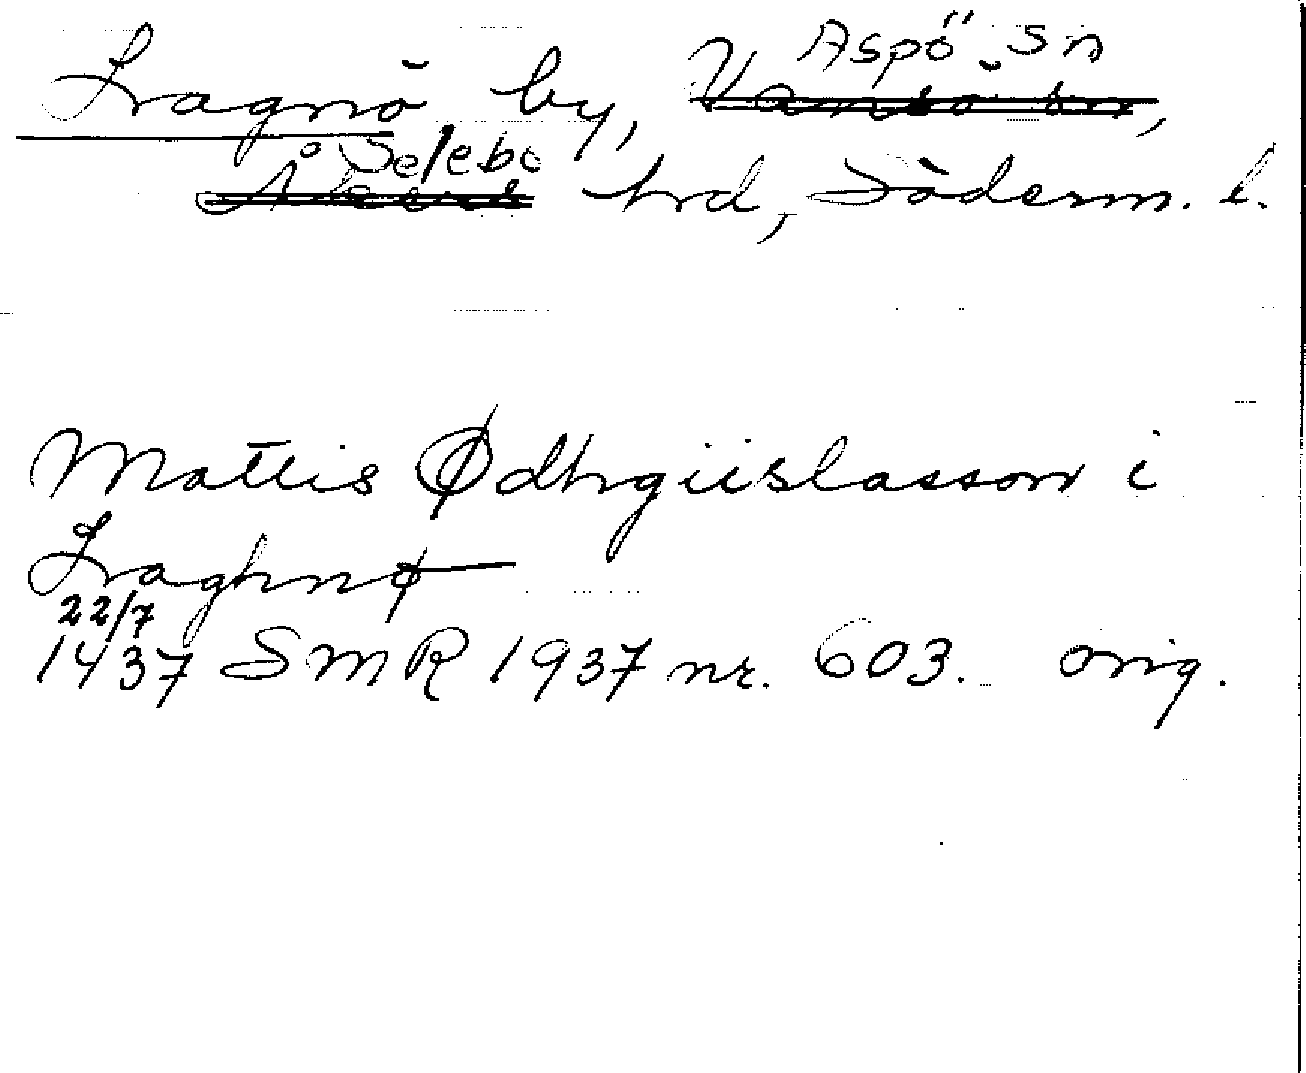 Aspö sn
Lagnö by, Vansö sn,
Selebo
Åkers hrd, Söderm. l.
Mattis Ødhrgiislasson i
Laghnø
22/7
1437 SMR 1937 nr. 603. orig.